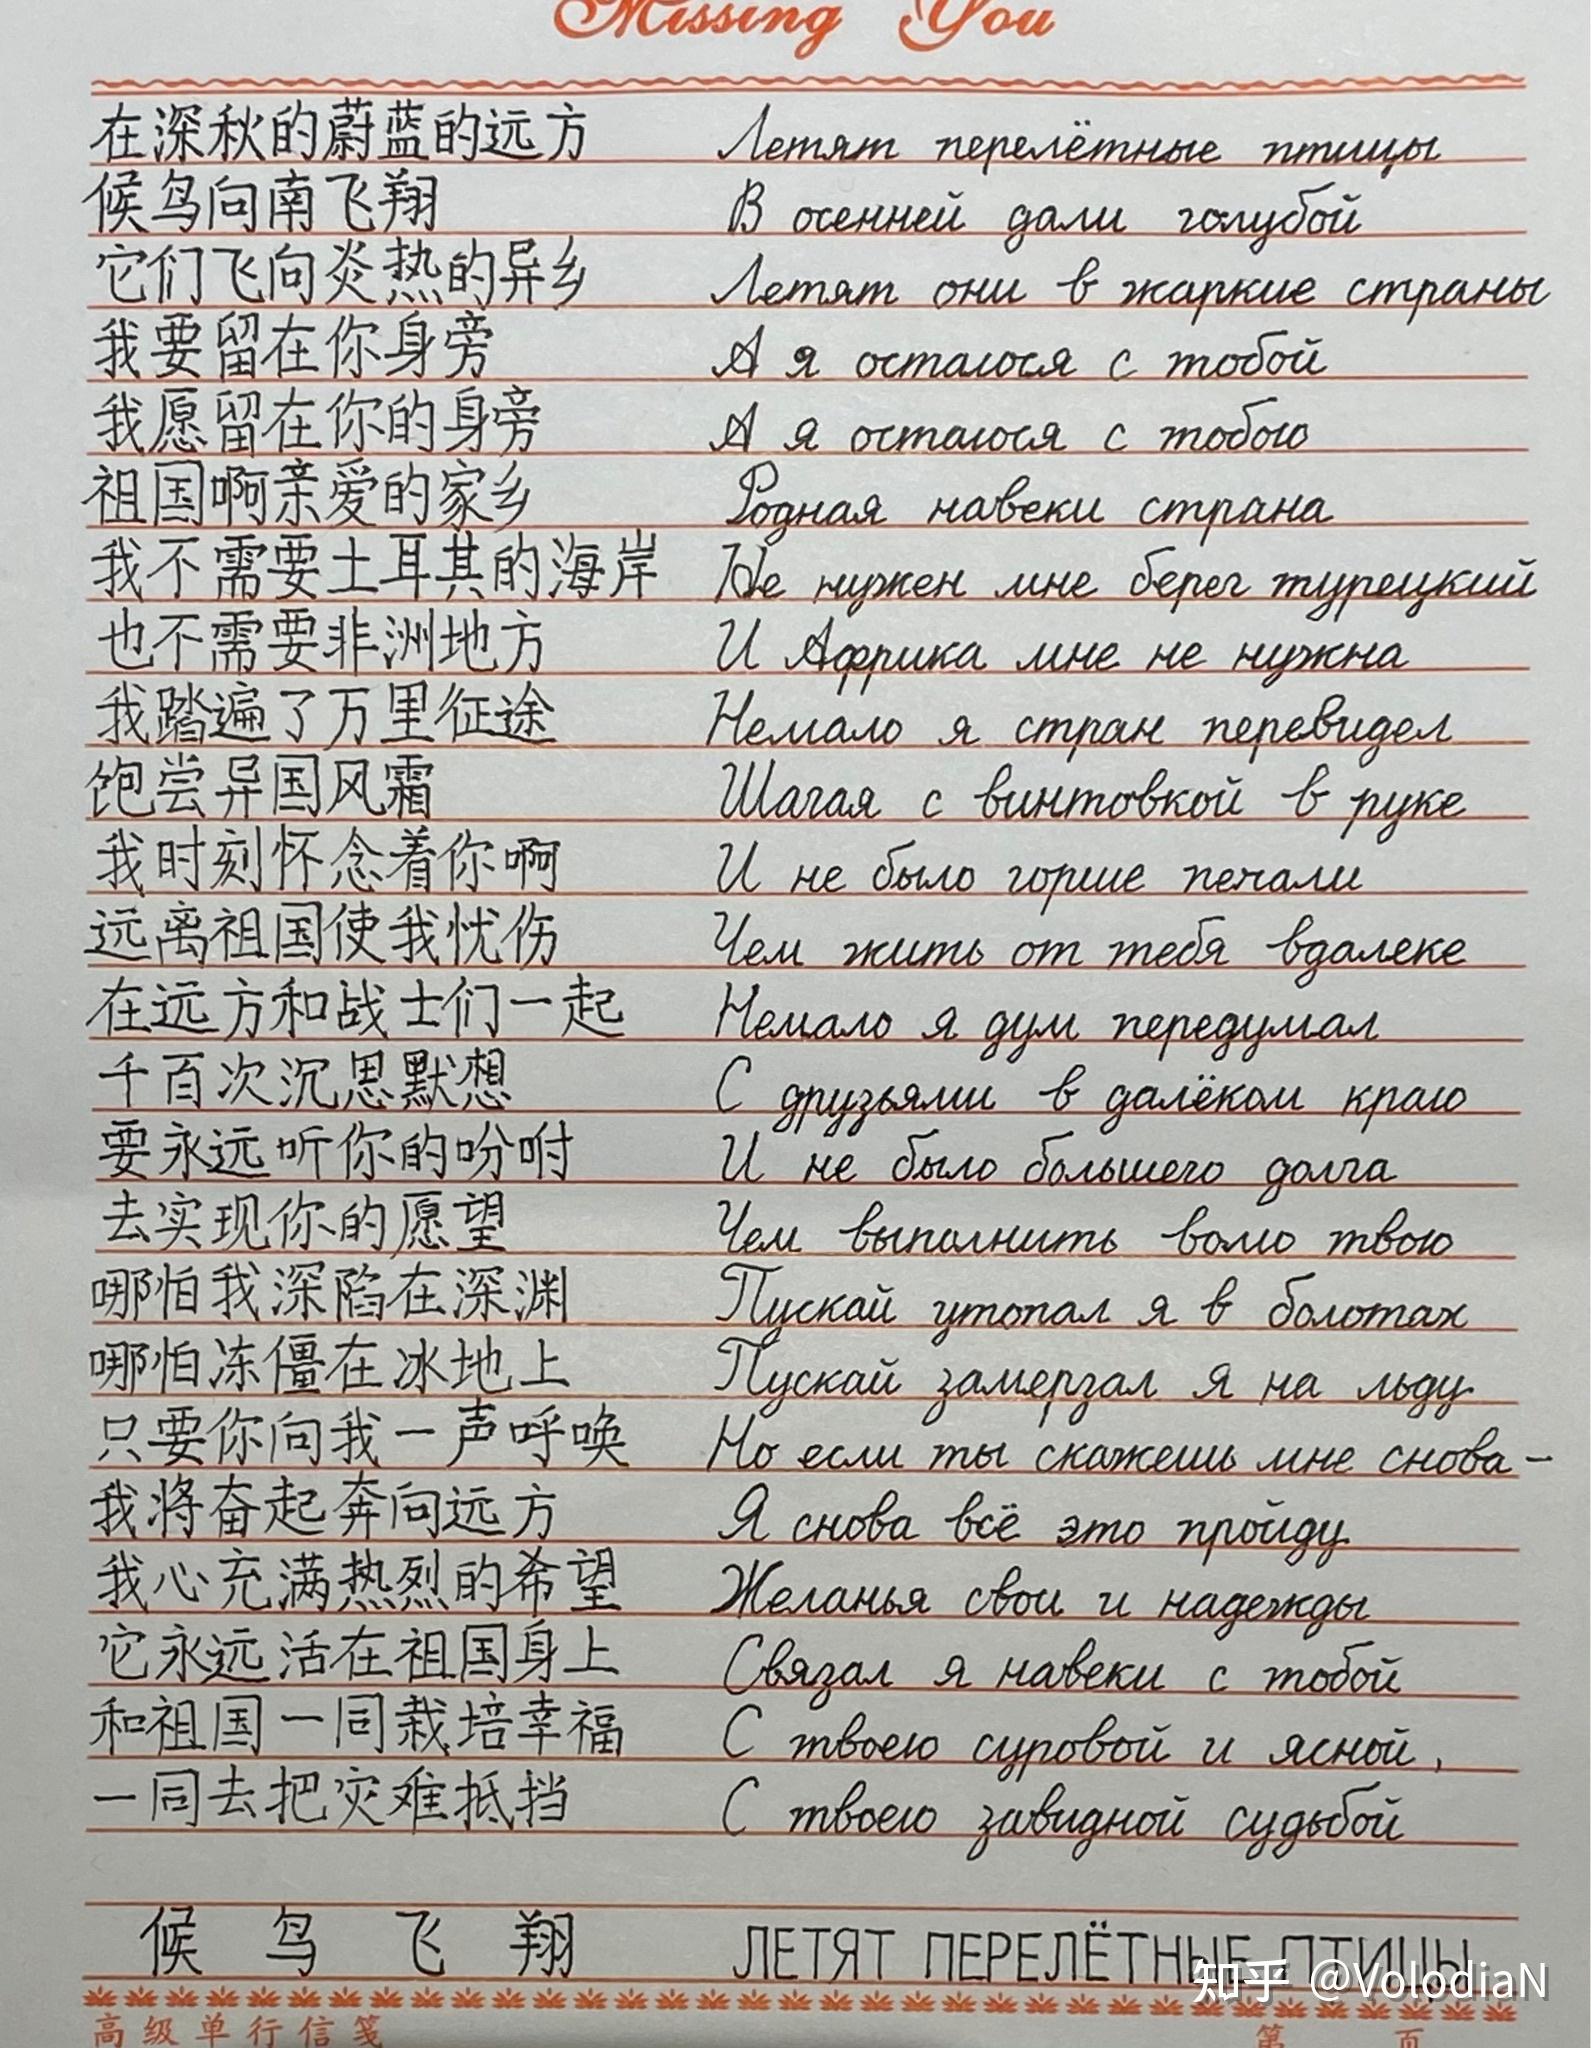 Missing You
在深秋的蔚蓝的远方 Летят перелётные птицы
候鸟向南飞翔 В осенней дали голубой
它们飞向炎热的异乡 Летят они в жаркие страны
我要留在你身旁 А я остаюся с тобой
我愿留在你的身旁 А я остаюся с тобою
祖国啊亲爱的家乡 Родная навеки страна
我不需要土耳其的海岸 Не нужен мне берег турецкий
也不需要非洲地方 И Африка мне не нужна
我踏遍了万里征途 Немало я стран перевидел
饱尝异国风霜 Шагая с винтовкой в руке
我时刻怀念着你啊 И не было горше печали
远离祖国使我忧伤 Чем жить от тебя вдалеке
在远方和战士们一起 Немало я дум передумал
千百次沉思默想 С друзьями в далёком краю
要永远听你的吩咐 И не было большего долга
去实现你的愿望 Чем выполнить волю твою
哪怕我深陷在深渊 Пускай утопал я в болотах
哪怕冻僵在冰地上 Пускай замерзал я на льду
只要你向我一声呼唤 Но если ты скажешь мне снова-
我将奋起奔向远方 Я снова всё это пройду
我心充满热烈的希望 Желанья свои и надежды
它永远活在祖国身上 Связал я навеки с тобой
和祖国一同栽培幸福 С твоею суровой и ясной,
一同去把灾难抵挡 С твоею завидной судьбой
候鸟飞翔 ЛЕТЯТ ПЕРЕЛЁТНЫЕ ПТИЦЫ
知乎 @VolodiaN
高级单行信笺 第 页